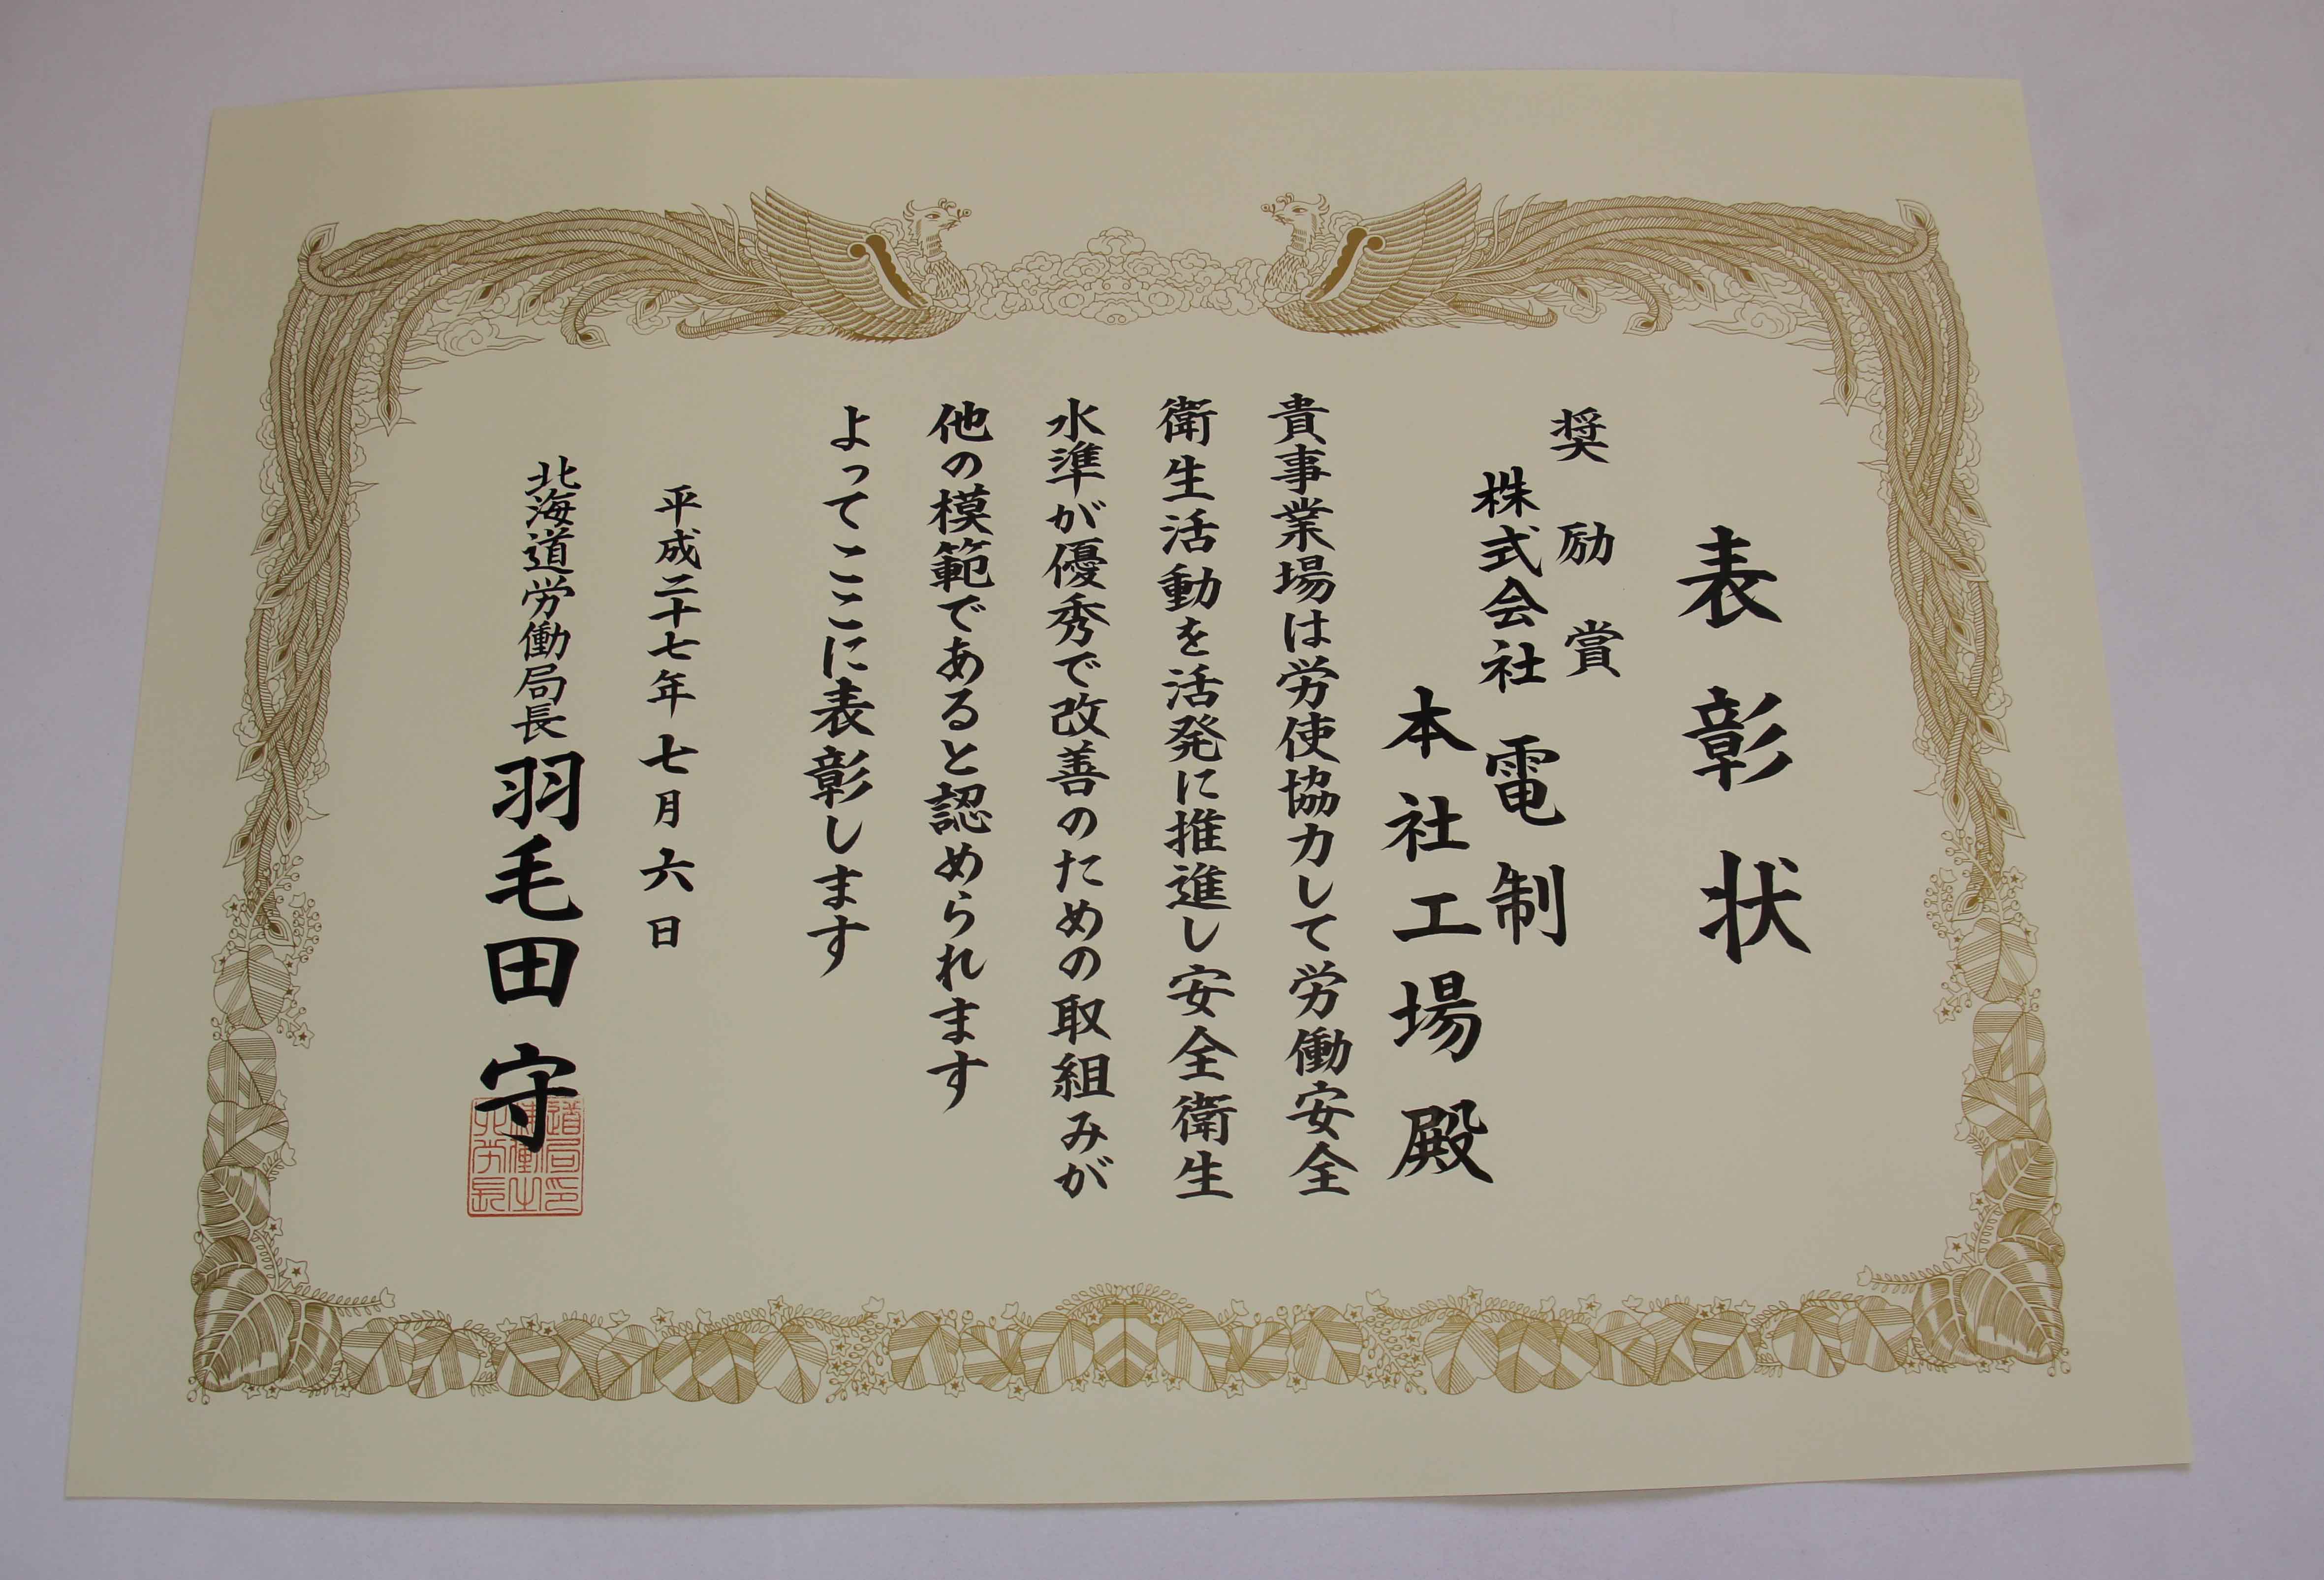 表彰状
奨励賞
株式会社 電制
本社工場殿
貴事業場は労使協力して労働安全
衛生活動を活発に推進し安全衛生
水準が優秀で改善のための取組みが
他の模範であると認められます
よってここに表彰します
平成二十七年七月六日
北海道労働局長 羽毛田 守